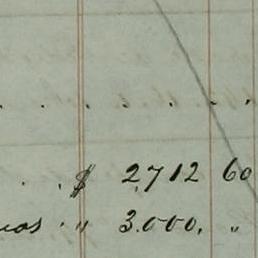 . . $ 2,712 60
uas . " 3.000. "